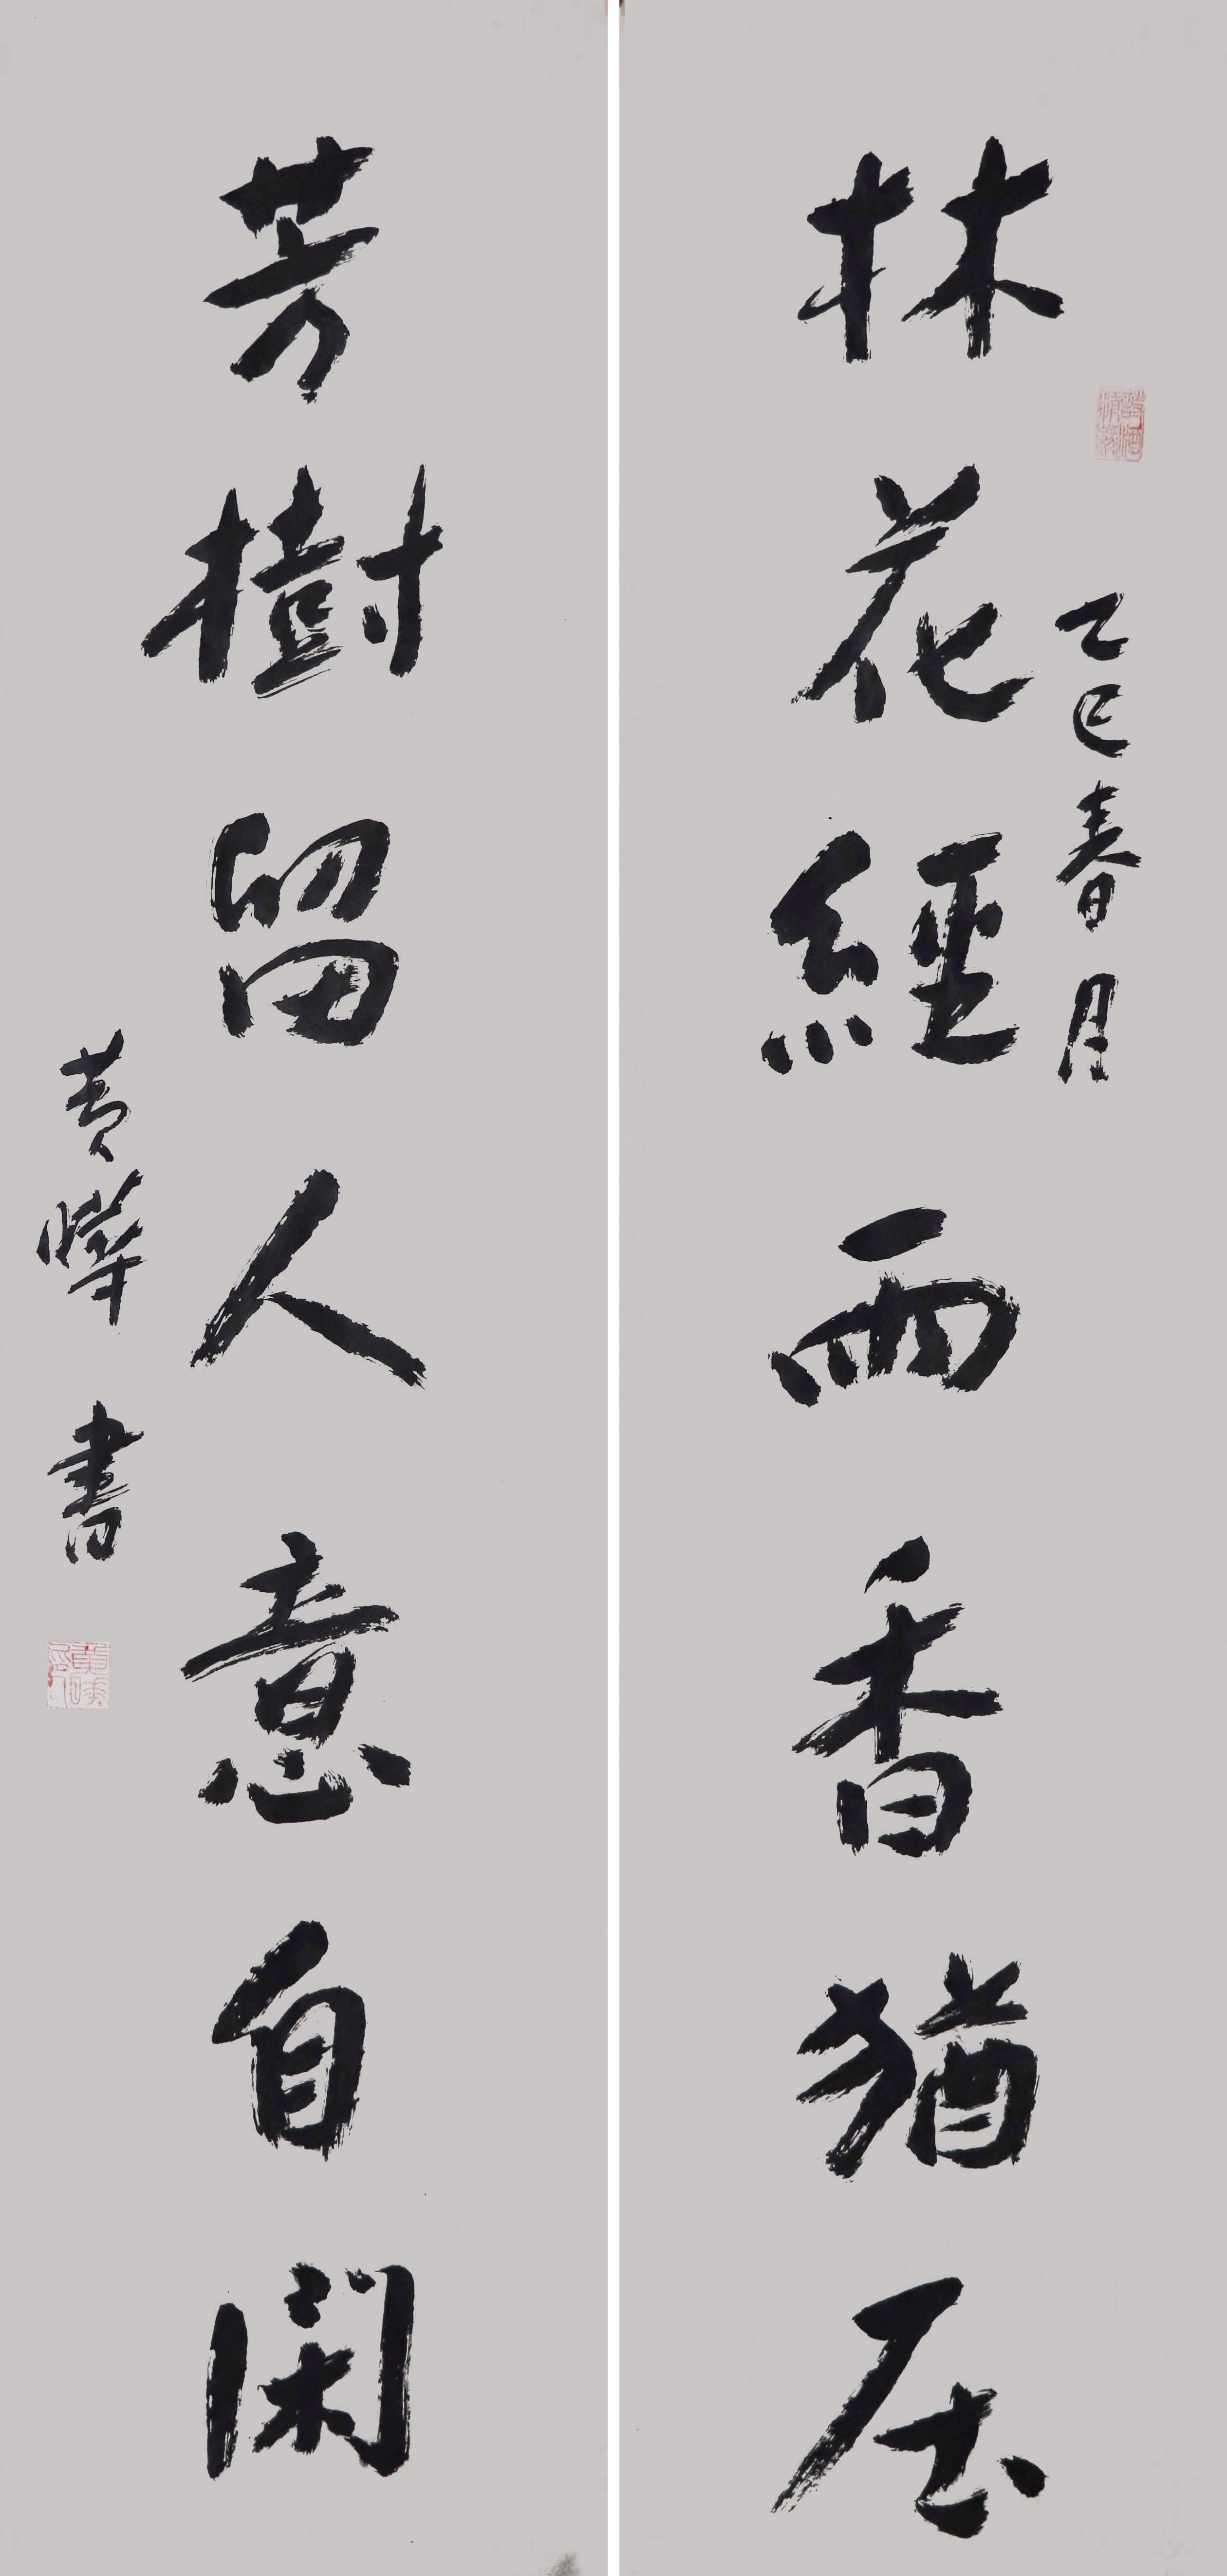 乙巳春月
林花經雨香猶在
芳樹留人意自閑
黄曄書